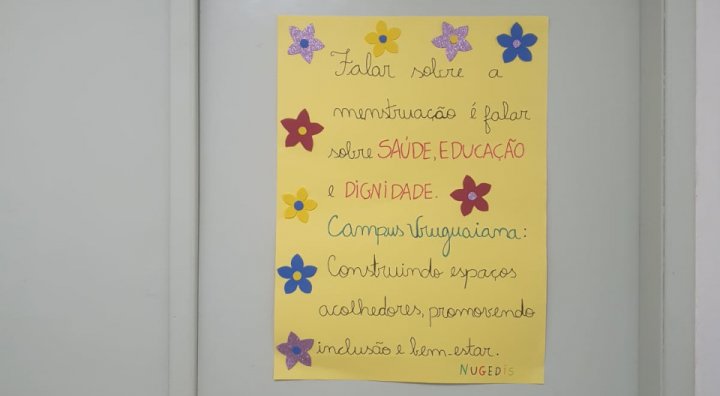 Falar sobre a
menstruação é falar
sobre SAÚDE, EDUCAÇÃO
e DIGNIDADE.
Campus Uruguaiana:
Construindo espaços
acolhedores, promovendo
inclusão e bem-estar.
NUGEDIS